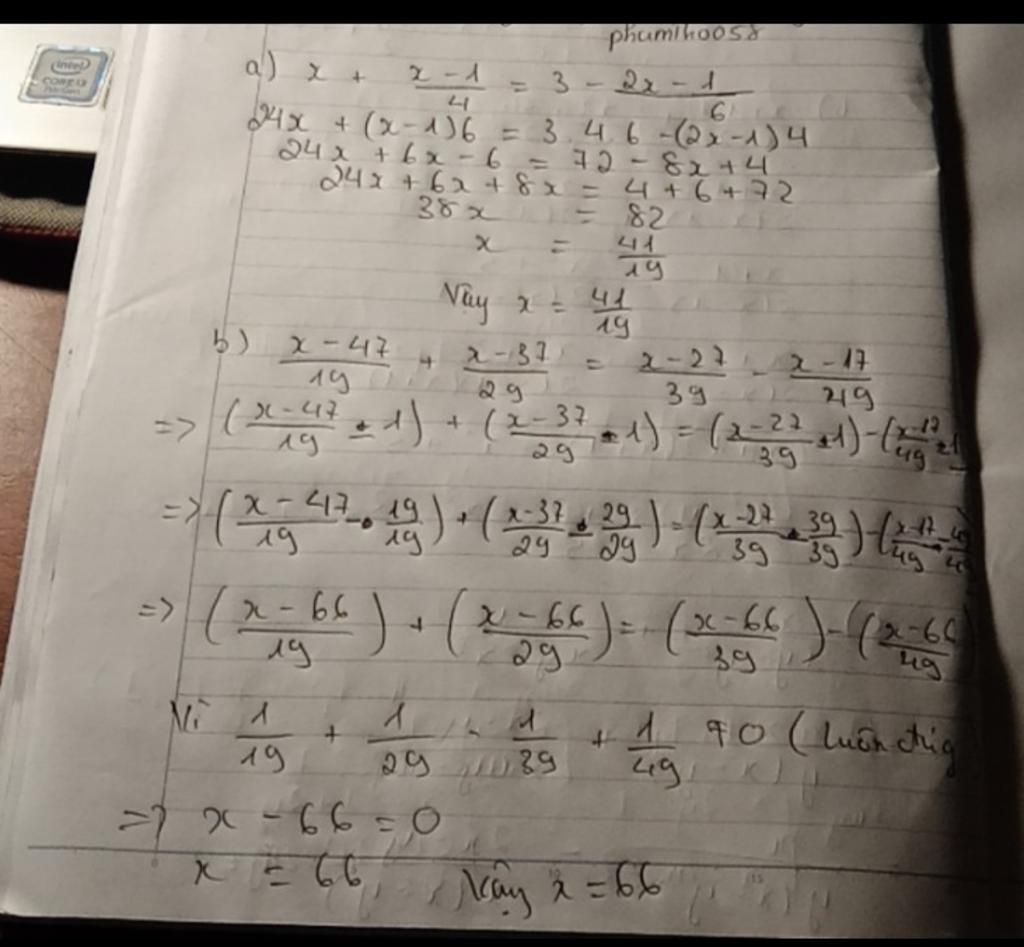 phumih0058
intel
CORE i3
a) x + \frac{x-1}{4} = 3 - \frac{2x-1}{6}
24x + (x-1)6 = 3.4.6 -(2x-1)4
24x + 6x - 6 = 72 - 8x + 4
24x + 6x + 8x = 4 + 6 + 72
38x = 82
x = \frac{41}{19}
Vậy x = \frac{41}{19}
b) \frac{x-47}{19} + \frac{x-37}{29} = \frac{x-27}{39} - \frac{x-17}{49}
=> (\frac{x-47}{19} - 1) + (\frac{x-37}{29} - 1) = (\frac{x-27}{39} - 1) - (\frac{x-17}{49} - 1
=> (\frac{x-47}{19} - \frac{19}{19}) + (\frac{x-37}{29} - \frac{29}{29}) = (\frac{x-27}{39} - \frac{39}{39}) - (\frac{x-17}{49} - \frac{49}{49}
=> (\frac{x-66}{19}) + (\frac{x-66}{29}) = (\frac{x-66}{39}) - (\frac{x-66}{49})
Vì \frac{1}{19} + \frac{1}{29} - \frac{1}{39} + \frac{1}{49} ≠ 0 (luôn đúng
=> x - 66 = 0
x = 66 Vậy x = 66